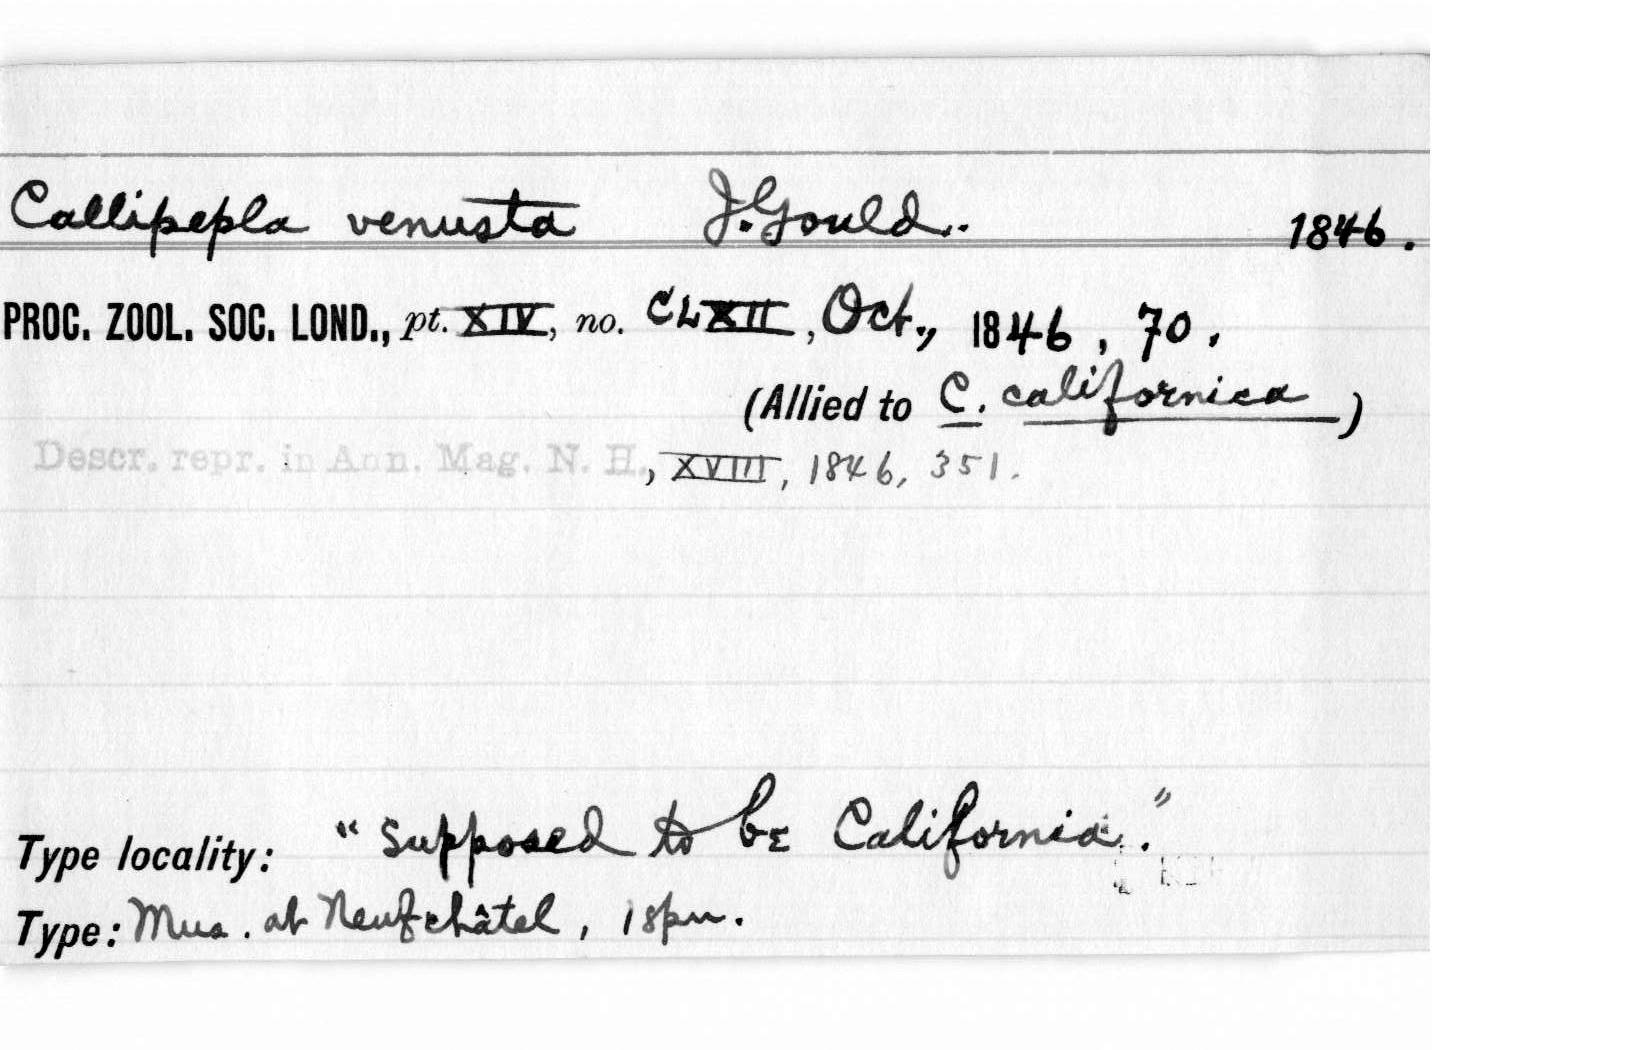 Callipepla venusta J. Gould. 1846.
PROC. ZOOL. SOC. LOND., pt. XIV, no. CLXII, Oct., 1846, 70.
(Allied to C. californica)
Descr. repr. in Ann. Mag. N. H., XVIII, 1846, 351.
Type locality: "Supposed to be California."
Type: Mus. at Neufchâtel, 1 spm.